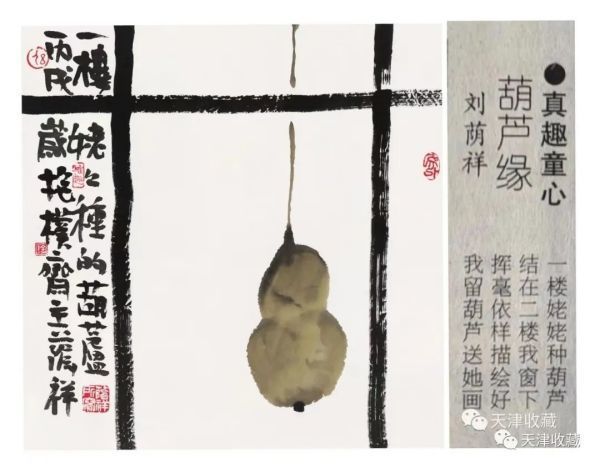 一樓姥々種的葫蘆
丙戌歲抱樸齋主蔭祥
●真趣童心
葫芦缘
刘荫祥
一楼姥姥种葫芦
结在二楼我窗下
挥毫依样描绘好
我留葫芦送她画
天津收藏
天津收藏